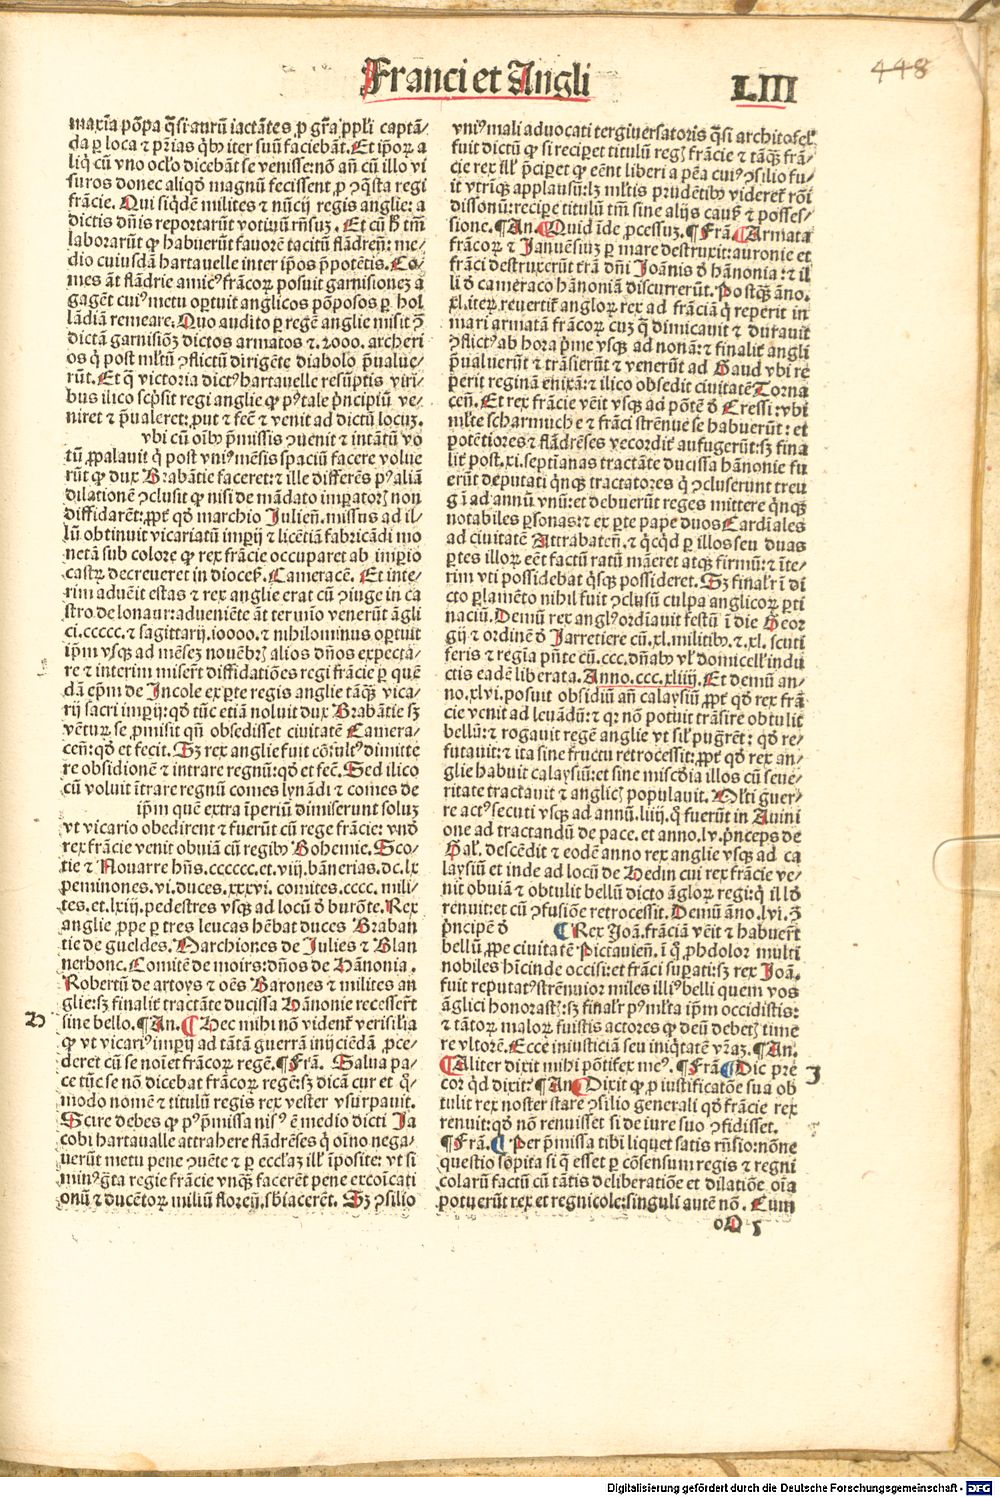 Franci et Angli
LIII
448
maxīa pōpa q̄si aurū iactātes ꝓ gr̄a ppl'i captā/
da ꝑ loca ⁊ pr̄ias q̄bꝰ iter suū faciebāt. Et ip̄oꝝ a
liq̄ cū vno oc̄lo dicebāt se venisse: nō añ cū illo vi
suros donec aliqd̄ magnū fecissent ꝓ ꝯq̄sta regi
frācie. Qui siq̄dem milites ⁊ nūcij regis anglie: a
dictis dn̄is reportarūt votiuū rn̄suꝫ. Et cū tm̄
laborarūt ꝙ habuerūt fauorē tacitū flādreñ: me/
dio cuiusdā hartauelle inter ip̄os p̄potētis. Co/
mes āt flādrie amicꝰ frācoꝝ posuit garnisonez a
gagēt cuiꝰ metu oꝑtuit anglicos pōposos ꝑ hol
lādiā remeare: Quo audito ꝑ regē anglie misit ꝯ̄
dictā garnisiōꝫ dictos armatos ⁊ .2000. archeri
os q̄ post ml'tū ꝯflictū dirigēte diabolo p̄ualue/
rūt. Et q̄ victoria dictꝰ hartauelle resūptis viri/
bus ilico sc̄psit regi anglie ꝙ pꝰ tale p̄ncipiū ve/
niret ⁊ p̄ualeret: ꝓut ⁊ fec̄ ⁊ venit ad dictū locuꝫ.
vbi cū oībꝰ p̄missis ꝯuenit ⁊ intātū vo
tū ꝓpalauit q̄ post vniꝰ mēsis spaciū facere volue
rūt ꝙ dux Brabātie faceret: ⁊ ille differēs pꝰ aliā
dilationē ꝯclusit ꝙ nisi de mādato imꝑatoꝝ non
diffidarēt: ꝓpt̄ qd̄ marchio Julieñ. missus ad il/
lū obtinuit vicariatū imꝑij ⁊ licētiā fabricādi mo
netā sub colore ꝙ rex frācie occuparet ab imꝑio
castꝝ decreueret in dioceß. Cameracē. Et inte/
rim aduēit estas ⁊ rex anglie erat cū ꝯiuge in ca
stro de lonaur: adueniēte āt termīo venerūt āgli
ci. ccccc. ⁊ sagittarij. 10000. ⁊ nihilominus oꝑtuit
ip̄m vsqꝫ ad mēseꝫ nouēbrꝫ alios dn̄os expectā/
re ⁊ interim miserūt diffidatiōes regi frācie ꝑ quē
dā epm̄ de Jncole ex ꝑte regis anglie tāq̄ꝫ vica/
rij sacri imꝑij: qd̄ tūc etiā noluit dux Brabātie sꝫ
vētuꝝ se ꝓmisit qn̄ obsedisset ciuitatē Camera/
ceñ: qd̄ et fecit. Sꝫ rex anglie fuit cōsultꝰ dimitte
re obsidionē ⁊ intrare regnū: qd̄ et fec̄. Sed ilico
cū voluit ītrare regnū comes lynādi ⁊ comes de
ip̄m quē extra īperiū dimiserunt soluꝫ
vt vicario obedirent ⁊ fuerūt cū rege frācie: vnd̄
rex frācie venit obuiā cū regibꝰ Bohemie. Sco/
tie ⁊ Nouarre hñs. cccccc. et .viij. bānerias. dc. lx
peminones. vi. duces. xxxvi. comites. cccc. mili/
tes. et. lxiij. pedestres vsqꝫ ad locū d̄ burōte. Rex
anglie ꝓpe ꝑ tres leucas hēbat duces Braban
tie de gueldes. Marchiones de Julies ⁊ Blan
nerbonc. Comitē de moirs: dn̄os de Hānonia.
Robertū de artoys ⁊ oēs Barones ⁊ milites an
glie: sꝫ finalit̄ tractāte ducissa Hānonie recesserūt
sine bello. ¶An. ¶Hec mihi nō vident̄ verisilia
ꝙ vt vicariꝰ imꝑij ad tātā guerrā inijciēdā ꝓce/
deret cū se noīet frācoꝝ regē. ¶Frā. Salua pa/
ce tūc se nō dicebat frācoꝝ regē: sꝫ dicā cur et q̄/
modo nomē ⁊ titulū regis rex vester vsurpauit.
Scire debes ꝙ pꝰ p̄missa nisꝰ ē medio dicti Ja
cobi hartaualle attrahere flādrēses q̄ oīno nega/
uerūt metu pene ꝯuēte ⁊ ꝑ eccl'iaꝫ ill' īposite: vt si
minꝰ gͣta regie frācie vnq̄ꝫ facerēt pene excoīcati
onū ⁊ ducētoꝝ miliū floreij. sb̄iacerēt. Sꝫ ꝯsilio
vniꝰ mali aduocati tergiuersatoris q̄si architofel'
fuit dictū ꝙ si reciꝑet titulū regꝫ frācie ⁊ tāqꝫ frā/
cie rex ill' p̄ciperet ꝙ eēnt liberi a pēa cuiꝰ ꝯsilio fu/
it vtrīqꝫ applausū: lꝫ ml'tis prudētibꝰ videret̄ rōi
dissonū: reciꝑe titulū tm̄ sine alijs causꝫ ⁊ posses/
sione. ¶An. ¶Quid īde ꝓcessuꝫ. ¶Frā. ¶Armata
frācoꝝ ⁊ Januēsiuꝫ ꝑ mare destruxit: auronie et
frāci destruxerūt trā dn̄i Joānis d̄ hānonia: ⁊ il
li d̄ cameraco hānoniā discurrerūt. Postq̄ꝫ āno.
xl. iteꝝ reuertit̄ angloꝝ rex ad frāciā q̄ reperit in
mari armatā frācoꝝ cuꝫ q̄ dimicauit ⁊ durauit
ꝯflictꝰ ab hora p̄me vsqꝫ ad nonā: ⁊ finalit̄ angli
p̄ualuerūt ⁊ trāsierūt ⁊ venerūt ad Gaud vbi re
perit reginā enixā: ⁊ ilico obsedit ciuitatē Torna
ceñ. Et rex frācie vēit vsqꝫ ad pōtē d̄ Cressi: vbi
ml'te scharmuche ⁊ frāci strēnue se habuerūt: et
potētiores ⁊ flādrēses vecordit̄ aufugerūt: sꝫ fina
lit̄ post. xi. septīanas tractāte ducissa hānonie fu
erūt deputati q̄nqꝫ tractatores q̄ ꝯcluserunt treu
gā ad annū vnū: et debuerūt reges mittere q̄nqꝫ
notabiles ꝑsonas: ⁊ ex ꝑte pape duos Cardīales
ad ciuitatē Attrabateñ. ⁊ q̄cqd̄ ꝑ illos seu duas
ꝑtes illoꝝ eēt factū ratū māeret atqꝫ firmū: ⁊ īte/
rim vti possidebat q̄sqꝫ possideret. Sꝫ final'r ī di
cto ꝑlamēto nihil fuit ꝯclusū culpa anglicoꝝ ꝑti
naciū. Demū rex angl' ordiauit festū ī die Geor
gij ⁊ ordinē d̄ Jarretiere cū. xl. militibꝰ. ⁊. xl. scuti
feris ⁊ regīa pn̄te cū. ccc. dn̄abꝰ vl' domicell' indu
ctis eadē liberata. Anno. ccc. xliiij. Et demū an/
no. xlvi. posuit obsidiū añ calaysiū ꝓpt̄ qd̄ rex frā
cie venit ad leuādū: ⁊ q: nō potuit trāsire obtulit
bellū: ⁊ rogauit regē anglie vt sil' pugrēt: qd̄ re/
futauit: ⁊ ita sine fructu retrocessit: ꝓpt̄ qd̄ rex an/
glie habuit calaysiū: et sine miscd̄ia illos cū seue/
ritate tractauit ⁊ anglicꝭ populauit. Ml'ti guer/
re actꝰ secuti vsqꝫ ad annū. liiij. q̄ fuerūt in Auini
one ad tractandū de pace. et anno. lv. p̄nceps de
Gal'. descēdit ⁊ eodē anno rex anglie vsqꝫ ad ca
laysiū et inde ad locū de Hedin cui rex frācie ve/
nit obuiā ⁊ obtulit bellū dicto āgloꝝ regi: q̄ ill d̄
renuit: et cū ꝯfusiōe retrocessit. Demū āno. lvi. ꝯ̄
p̄ncipē d̄ ¶Rex Joā. frāciā vēit ⁊ habuerūt
bellū ꝓpe ciuitatē Pictauien. ī q̄ ꝓhdolor multi
nobiles hīcinde occisi: et frāci suꝑati: sꝫ rex Joā.
fuit reputatꝰ strēnuior miles illiꝰ belli quem vos
āglici honorastꝭ: sꝫ final'r pꝰ ml'ta ip̄m occidistis:
⁊ tātoꝝ maloꝝ fuistis actores ꝙ deū debetꝭ time
re vltorē. Ecce iniusticiā seu iniq̄tatē vr̄aꝫ. ¶An.
¶Aliter dixit mihi pōtifex meꝰ. ¶Frā. ¶Dic pre
cor qd̄ dixit: ¶An. Dixit ꝙ ꝓ iustificatōe sua ob
tulit rex noster stare ꝯsilio generali qd̄ francie rex
renuit: qd̄ nō renuisset si de iure suo ꝯfidisset.
¶Frā. ¶Per p̄missa tibi liquet satis rn̄sio: nōne
questio sopita si q̄ esset ꝑ cōsensum regis ⁊ regni
colarū factū cū tātis deliberatiōe et dilatiōe oīa
potuerūt rex et regnicole: singuli autē nō. Cum
H
J
oO 5
Digitalisierung gefördert durch die Deutsche Forschungsgemeinschaft - DFG